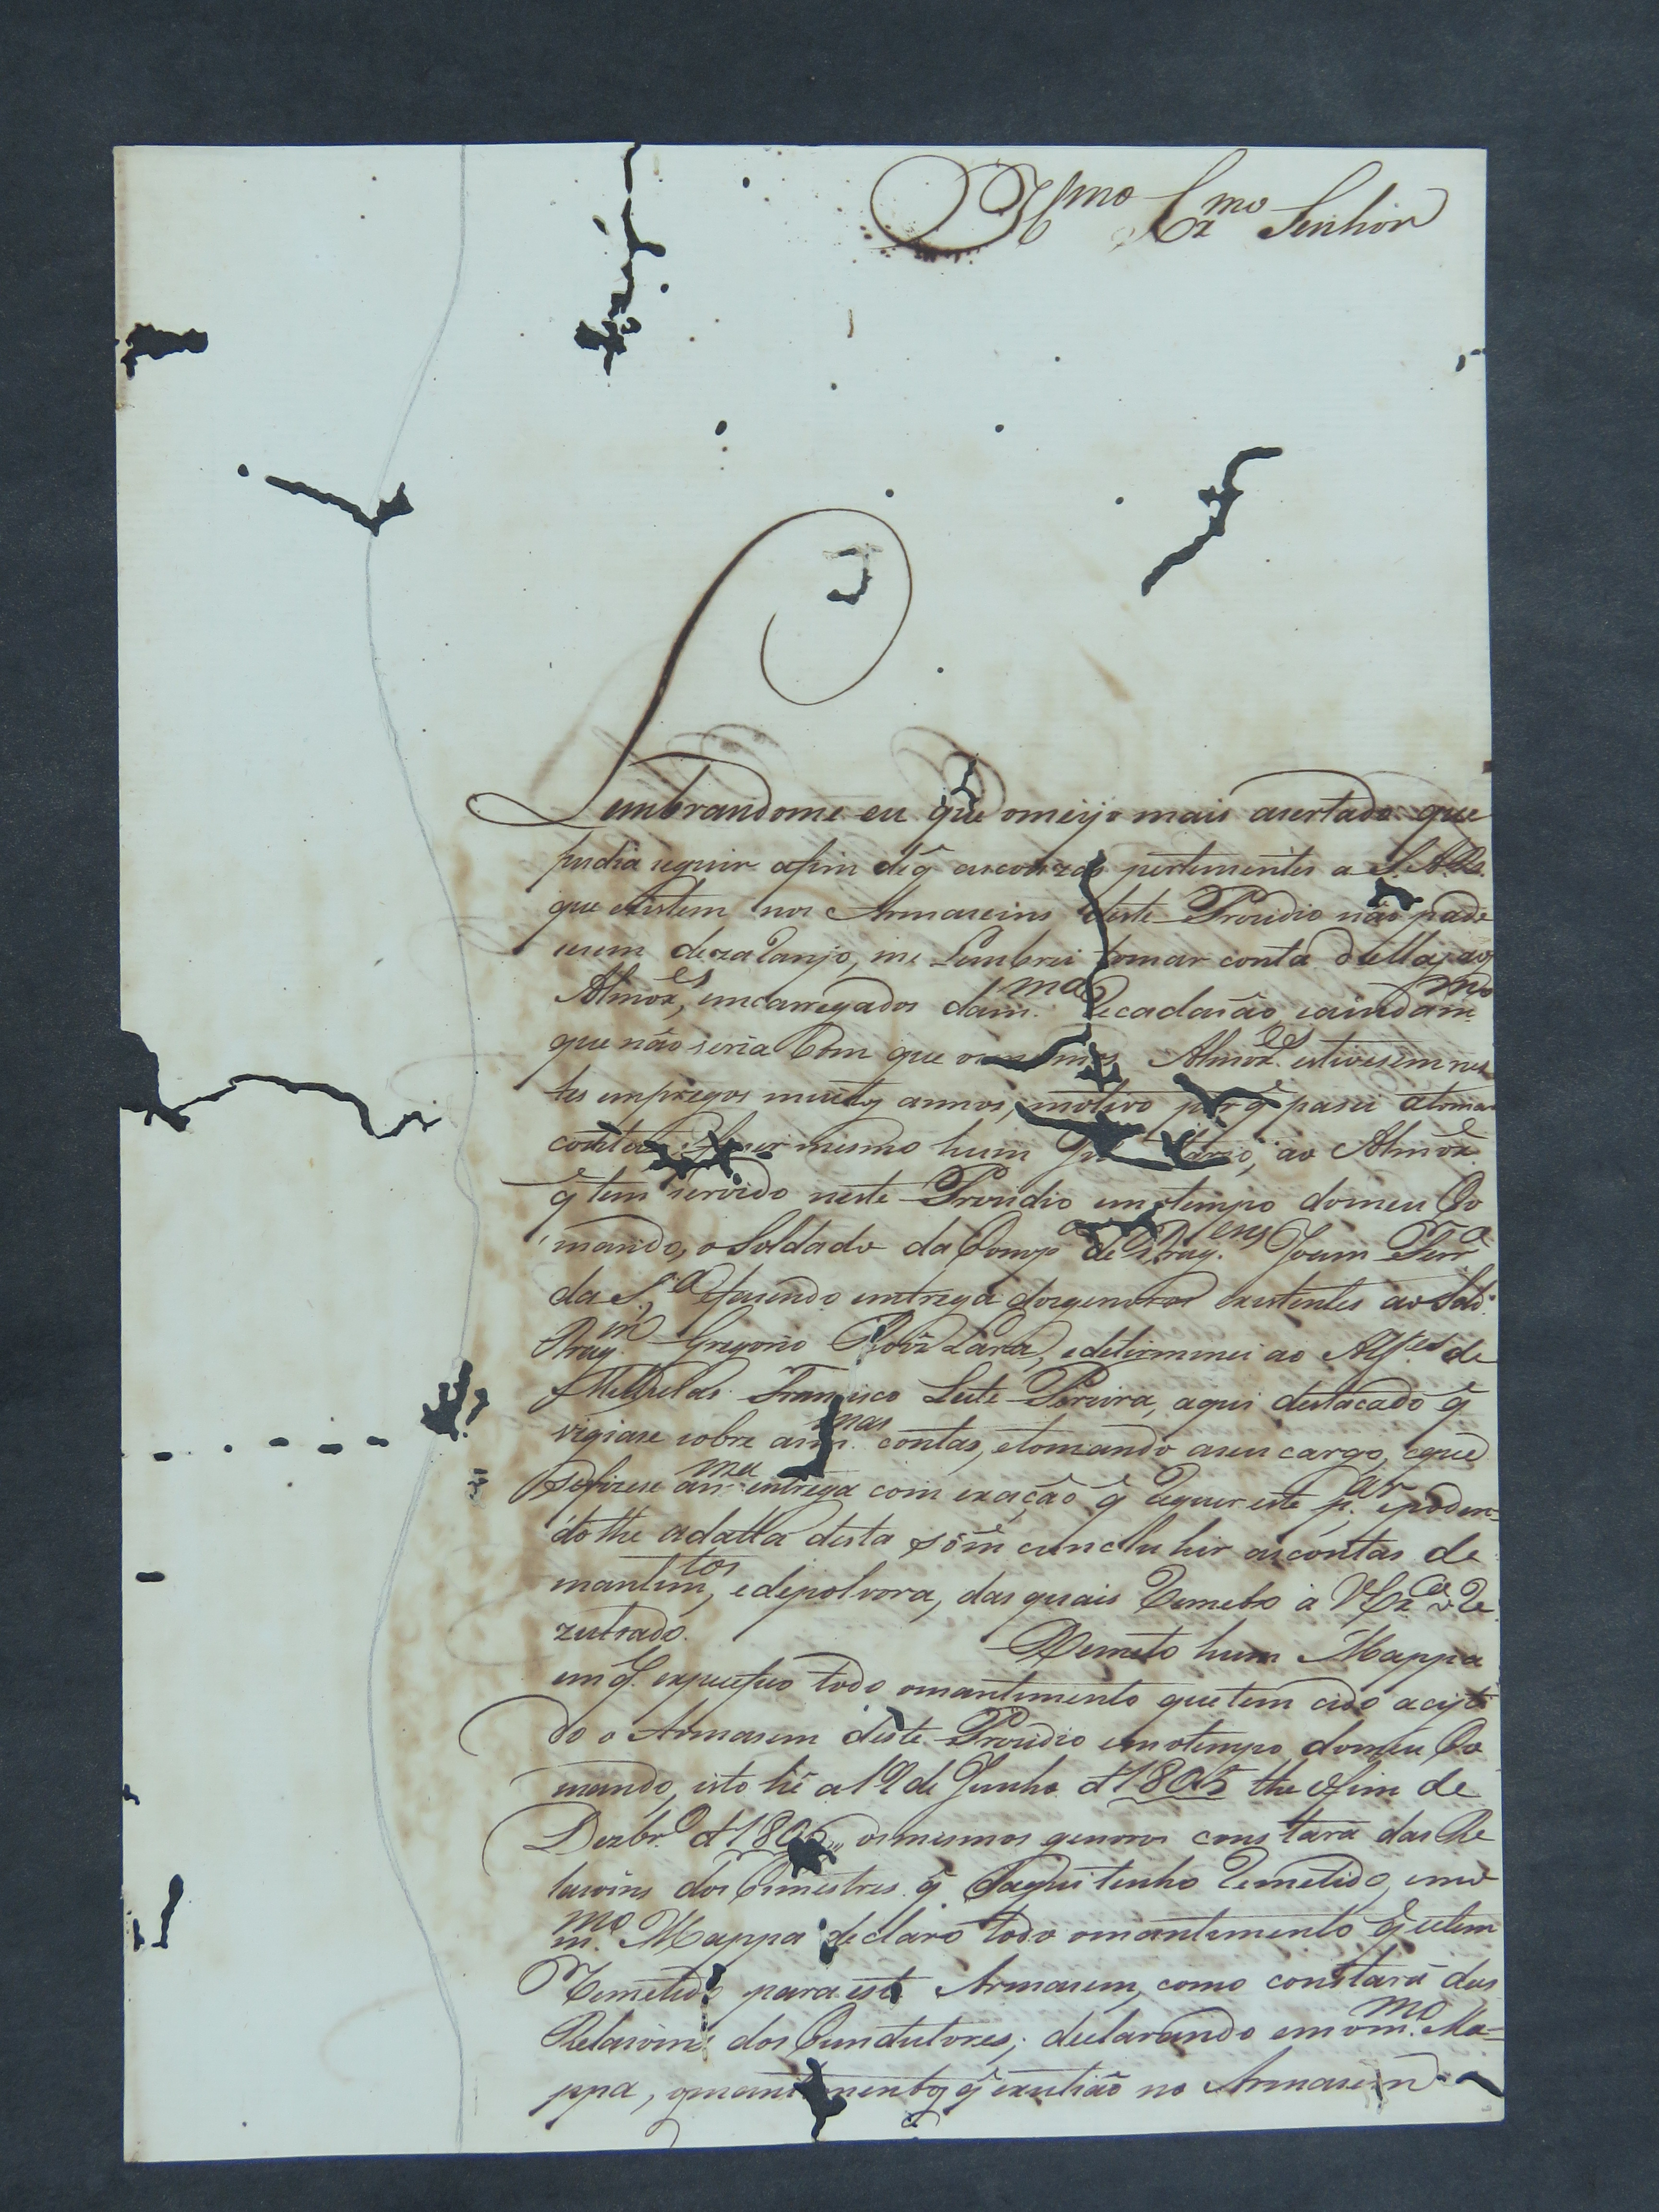 Illmo Exmo Senhor
Lembrandome eu que omeijo mais asertado que
pudia seguir afim de q̃ as couzas pertensentes a S.A.R.
que existem nos Armaseins deste Prezidio não pade
sesem dezaranjo, me Lembrei tomar conta dellas aos
Almox.es, emcarregados dam.ma Recadasão, eainda m.mo
que não seria bom que os mesmos Almox.es estivesem nes
tes empregos muitos annos, motivo porq̃ pasei atomar
contas mesmo hum ao Almox.e
q̃ tem servido neste Prezidio emotempo domeu Co
mando, o Soldado da Comp.a de Drag.ens Joam Ferr.a
da S.a efasendo emtrega dosgeneros existentes ao Sold.o
Drag.m Gregorio Roiz Lara, edeterminei ao Alf.es de
Melicias Francisco Leite Pereira, aqui destacado q̃
vigiase sobre asm.mas contas, etomando aseu cargo, eque
sefizese am.ma entrega com exação q̃ Requer este p.ar epoden=
dolhe adatta desta sóm.e concluhir ascontas de
mantim.tos, edepolvora, das quais Remeto a V.Ex.a o Re
zultado. Remeto hum Mappa
em q̃ expecefico todo omantimento quetem cido aceito
do o Armasem deste Prezidio emotempo domeu Co
mando, isto hé a 19 de Junho d 1805 the ofim de
Dezbr.o d 1806,, osmesmos generos constará das Re
lasoins dos Trimestres q̃ daqui tenho Remetido, emo
m.mo Mappa declaro todo omantimento q̃ setem
Remetido para este Armasem, como constará das
Relasoins dos Cundutores; declarando emom.mo Ma=
ppa, omantimentos q̃ existião no Armasem